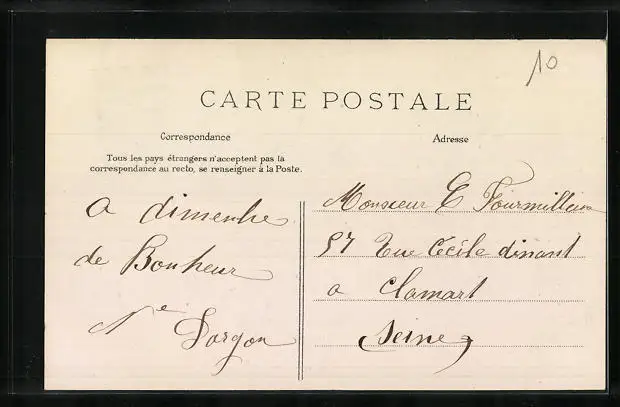 10
CARTE POSTALE
Correspondance
Adresse
Tous les pays étrangers n'acceptent pas la
correspondance au recto, se renseigner à la Poste.
a dimenhe
de Bonheur
Dorgon
Monsieur E Fourmillier
97 Rue Cécile dinant
a Clamart
Seine